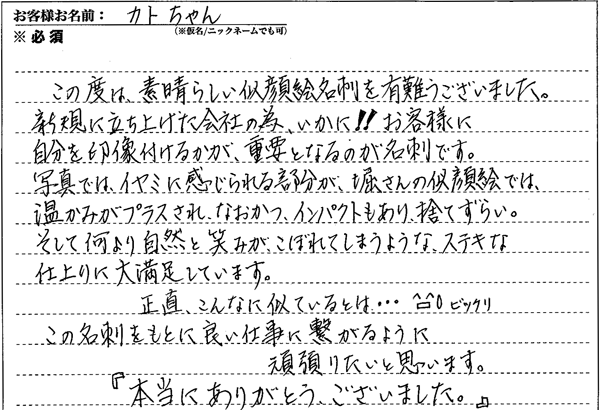 お客様お名前： カトちゃん
（※仮名/ニックネームでも可）
※必須
この度は、素晴らしい似顔絵名刺を有難うございました。
新規に立ち上げた会社の為、いかに!!お客様に
自分を印像付けるかが、重要となるのが名刺です。
写真では、イヤミに感じられる部分が、堀さんの似顔絵では、
温かみがプラスされ、なおかつ、インパクトもあり、捨てずらい。
そして何より自然と笑みが、こぼれてしまうような、ステキな
仕上りに大満足しています。
正直、こんなに似ているとは・・・ ビックリ
この名刺をもとに良い仕事に繋がるように
頑張りたいと思います。
『本当にありがとう、ございました。』